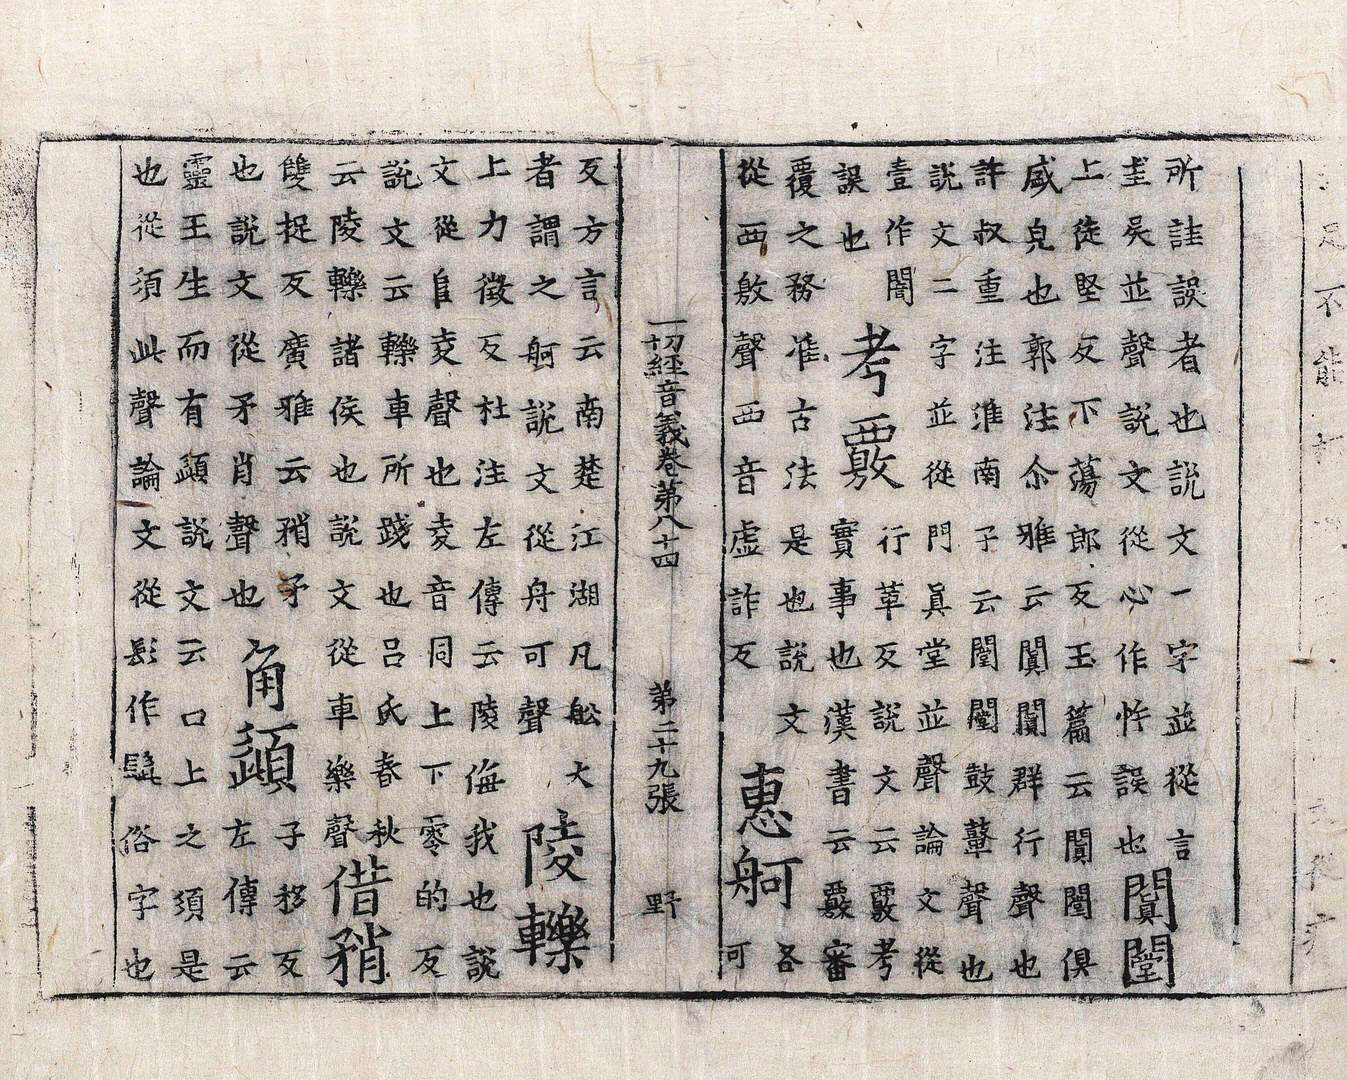 所詿誤者也說文一字並從言
圭吳並聲說文從心作忤誤也闐闛
上徒堅反下蕩郎反玉篇云闐闛俱
盛皃也郭注尒雅云闐闐群行聲也
許叔重注淮南子云闛闛鼓鞞聲也
說文二字並從門眞堂並聲論文從
壹作闇
誤也
考覈
行革反說文云覈考
實事也漢書云覈審
覆之務准古法是也說文
從襾敫聲襾音虛詐反
惠舸
各
可
一切經音義卷第八十四 第二十九張 野
反方言云南楚江湖凡舩大
者謂之舸說文從舟可聲
陵轢
上力徵反杜注左傳云陵侮我也說
文從𨸏夌聲也夌音同上下零的反
說文云轢車所踐也呂氏春秋
云陵轢諸侯也說文從車樂聲
借矟
雙捉反廣雅云矟矛
也說文從矛肖聲也
角頿
子移反
左傳云
靈王生而有頿說文云口上之須是
也從須此聲論文從髟作髭俗字也